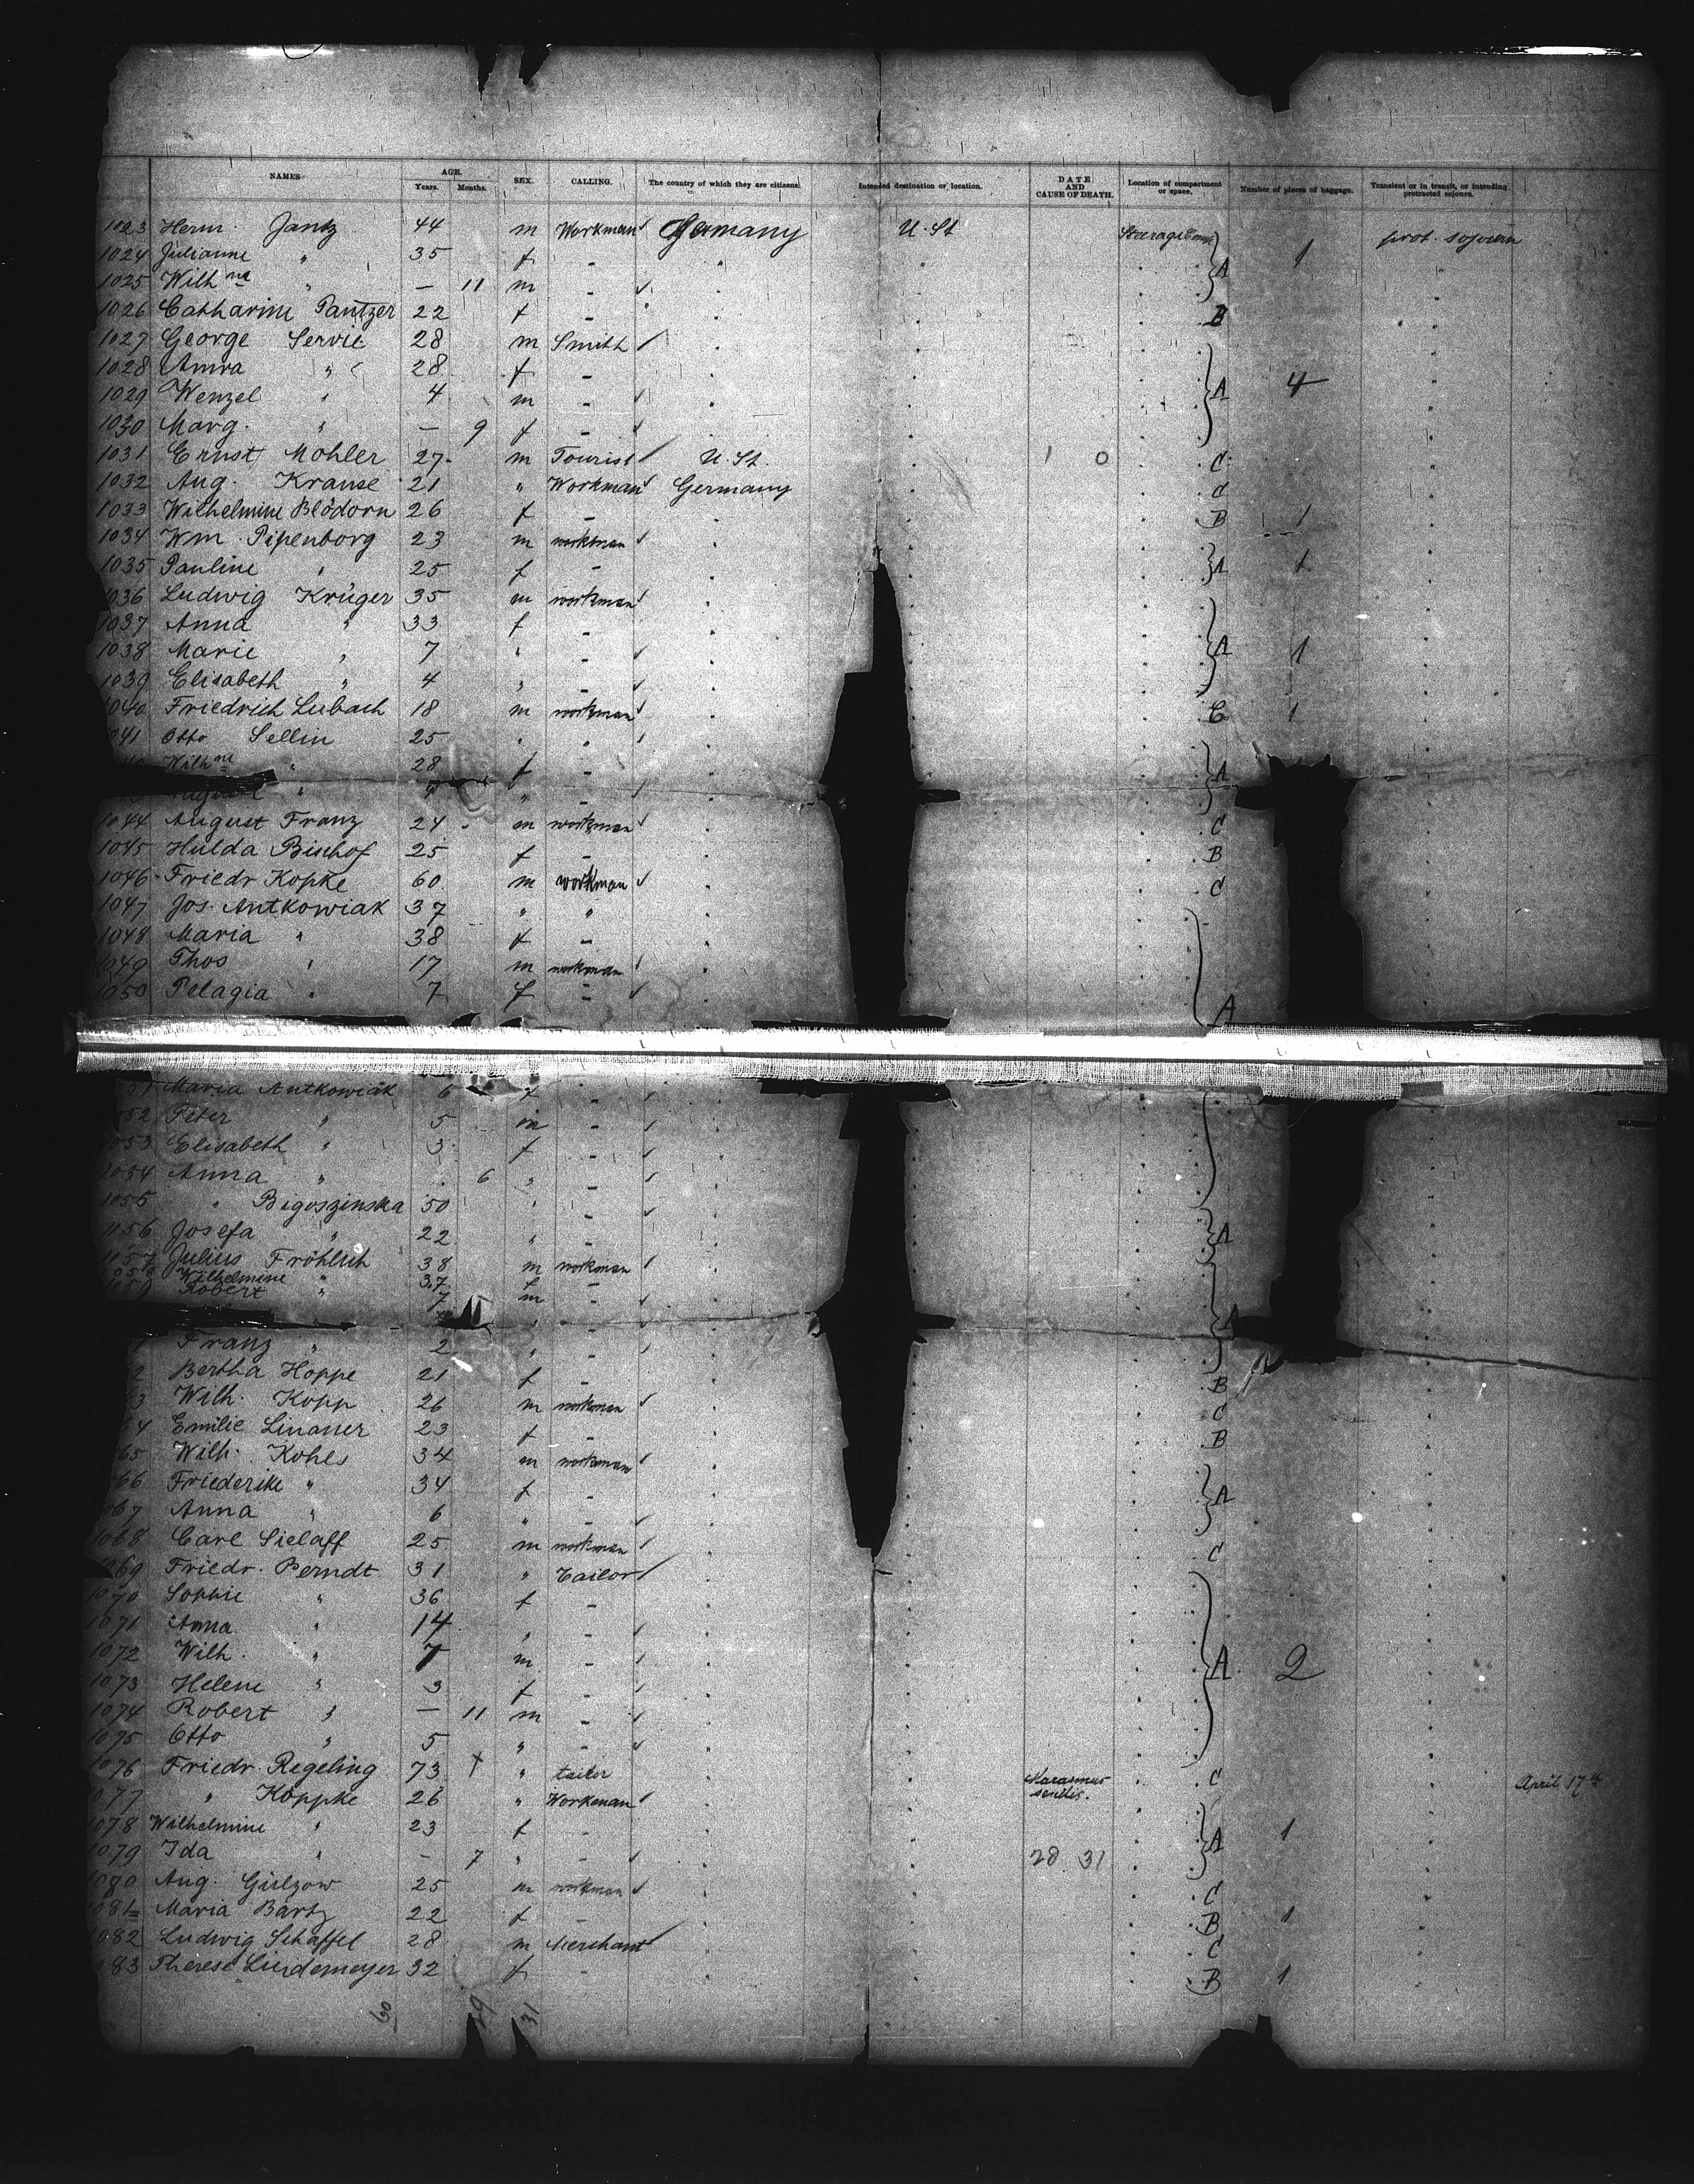 NAMES AGE. Years. Months. SEX. CALLING. The country of which they are citizens. Intended destination or location. DATE AND CAUSE OF DEATH. Location of compartment or space. Number of pieces of baggage. Transient or in transit, or intending protracted sojourn.
1023 Herm. Jantz 44 m Workman Germany U. St Steerage prot. sojourn
1024 Julianne " 35 f - " A 1
1025 Wilhne " — 11 m -
1026 Catharine Pantzer 22 f - B
1027 George Servie 28 m Smith
1028 " 28 f -
1029 Wenzel " 4 m - A 4
1030 Marg. " — 9 f -
1031 Ernst Mohler 27 m Tourist U. St. 1 0 C
1032 Aug. Krause 21 " Workman Germany C
1033 Wilhelmine Blödorn 26 f - B 1
1034 Wm. Pipenborg 23 m workman
1035 Pauline " 25 f - A 1
1036 Ludwig Krüger 35 m workman
1037 Anna " 33 f -
1038 Marie " 7 " - A 1
1039 Elisabeth " 4 " -
1040 Friedrich Lubach 18 m workman C 1
1041 Otto Sellin 25 " "
Wilhne " 28 f - A
" " -
1044 August Franz 24 m workman C
1045 Hulda Bischof 25 f - B
1046 Friedr Kopke 60 m workman C
1047 Jos. Antkowiak 37 " "
1048 Maria " 38 f -
1049 Thos " 17 m workman
1050 Pelagia " 7 f - A
51 Maria Antkowiak 6 f -
1052 Peter " 5 m -
1053 Elisabeth " 3 f -
1054 Anna " 6 " -
1055 " Bigoszinska 50 " -
1056 Josefa " 22 " - A
1057 Julius Fröhlich 38 m workman
1058 Wilhelmine " 37 f -
1059 Robert " 7 m -
A
1 Franz " 2 " -
2 Bertha Hoppe 21 f - B
3 Wilh. Kopp 26 m workman C
64 Emilie Linauer 23 f - B
65 Wilh. Kohls 34 m workman
66 Friederike " 34 f - A
067 Anna " 6 " -
1068 Carl Sielaff 25 m workman C
069 Friedr. Berndt 31 " Tailor
1070 Sophie " 36 f -
1071 Anna " 14 " -
1072 Wilh. " 7 m - A 2
1073 Helene " 3 f -
1074 Robert " — 11 m -
1075 Otto " 5 " -
1076 Friedr. Regeling 73 † " tailor Marasmus senilis. C April 17th
1077 " Köppke 26 " Workman
1078 Wilhelmine " 23 f - A 1
1079 Ida " - 7 " - 28 31
1080 Aug. Gülzow 25 m workman C
1081 Maria Bartz 22 f - B 1
1082 Ludwig Schaffel 28 m Merchant C
1083 Therese Lindemeyer 32 f - B 1
60 29 31